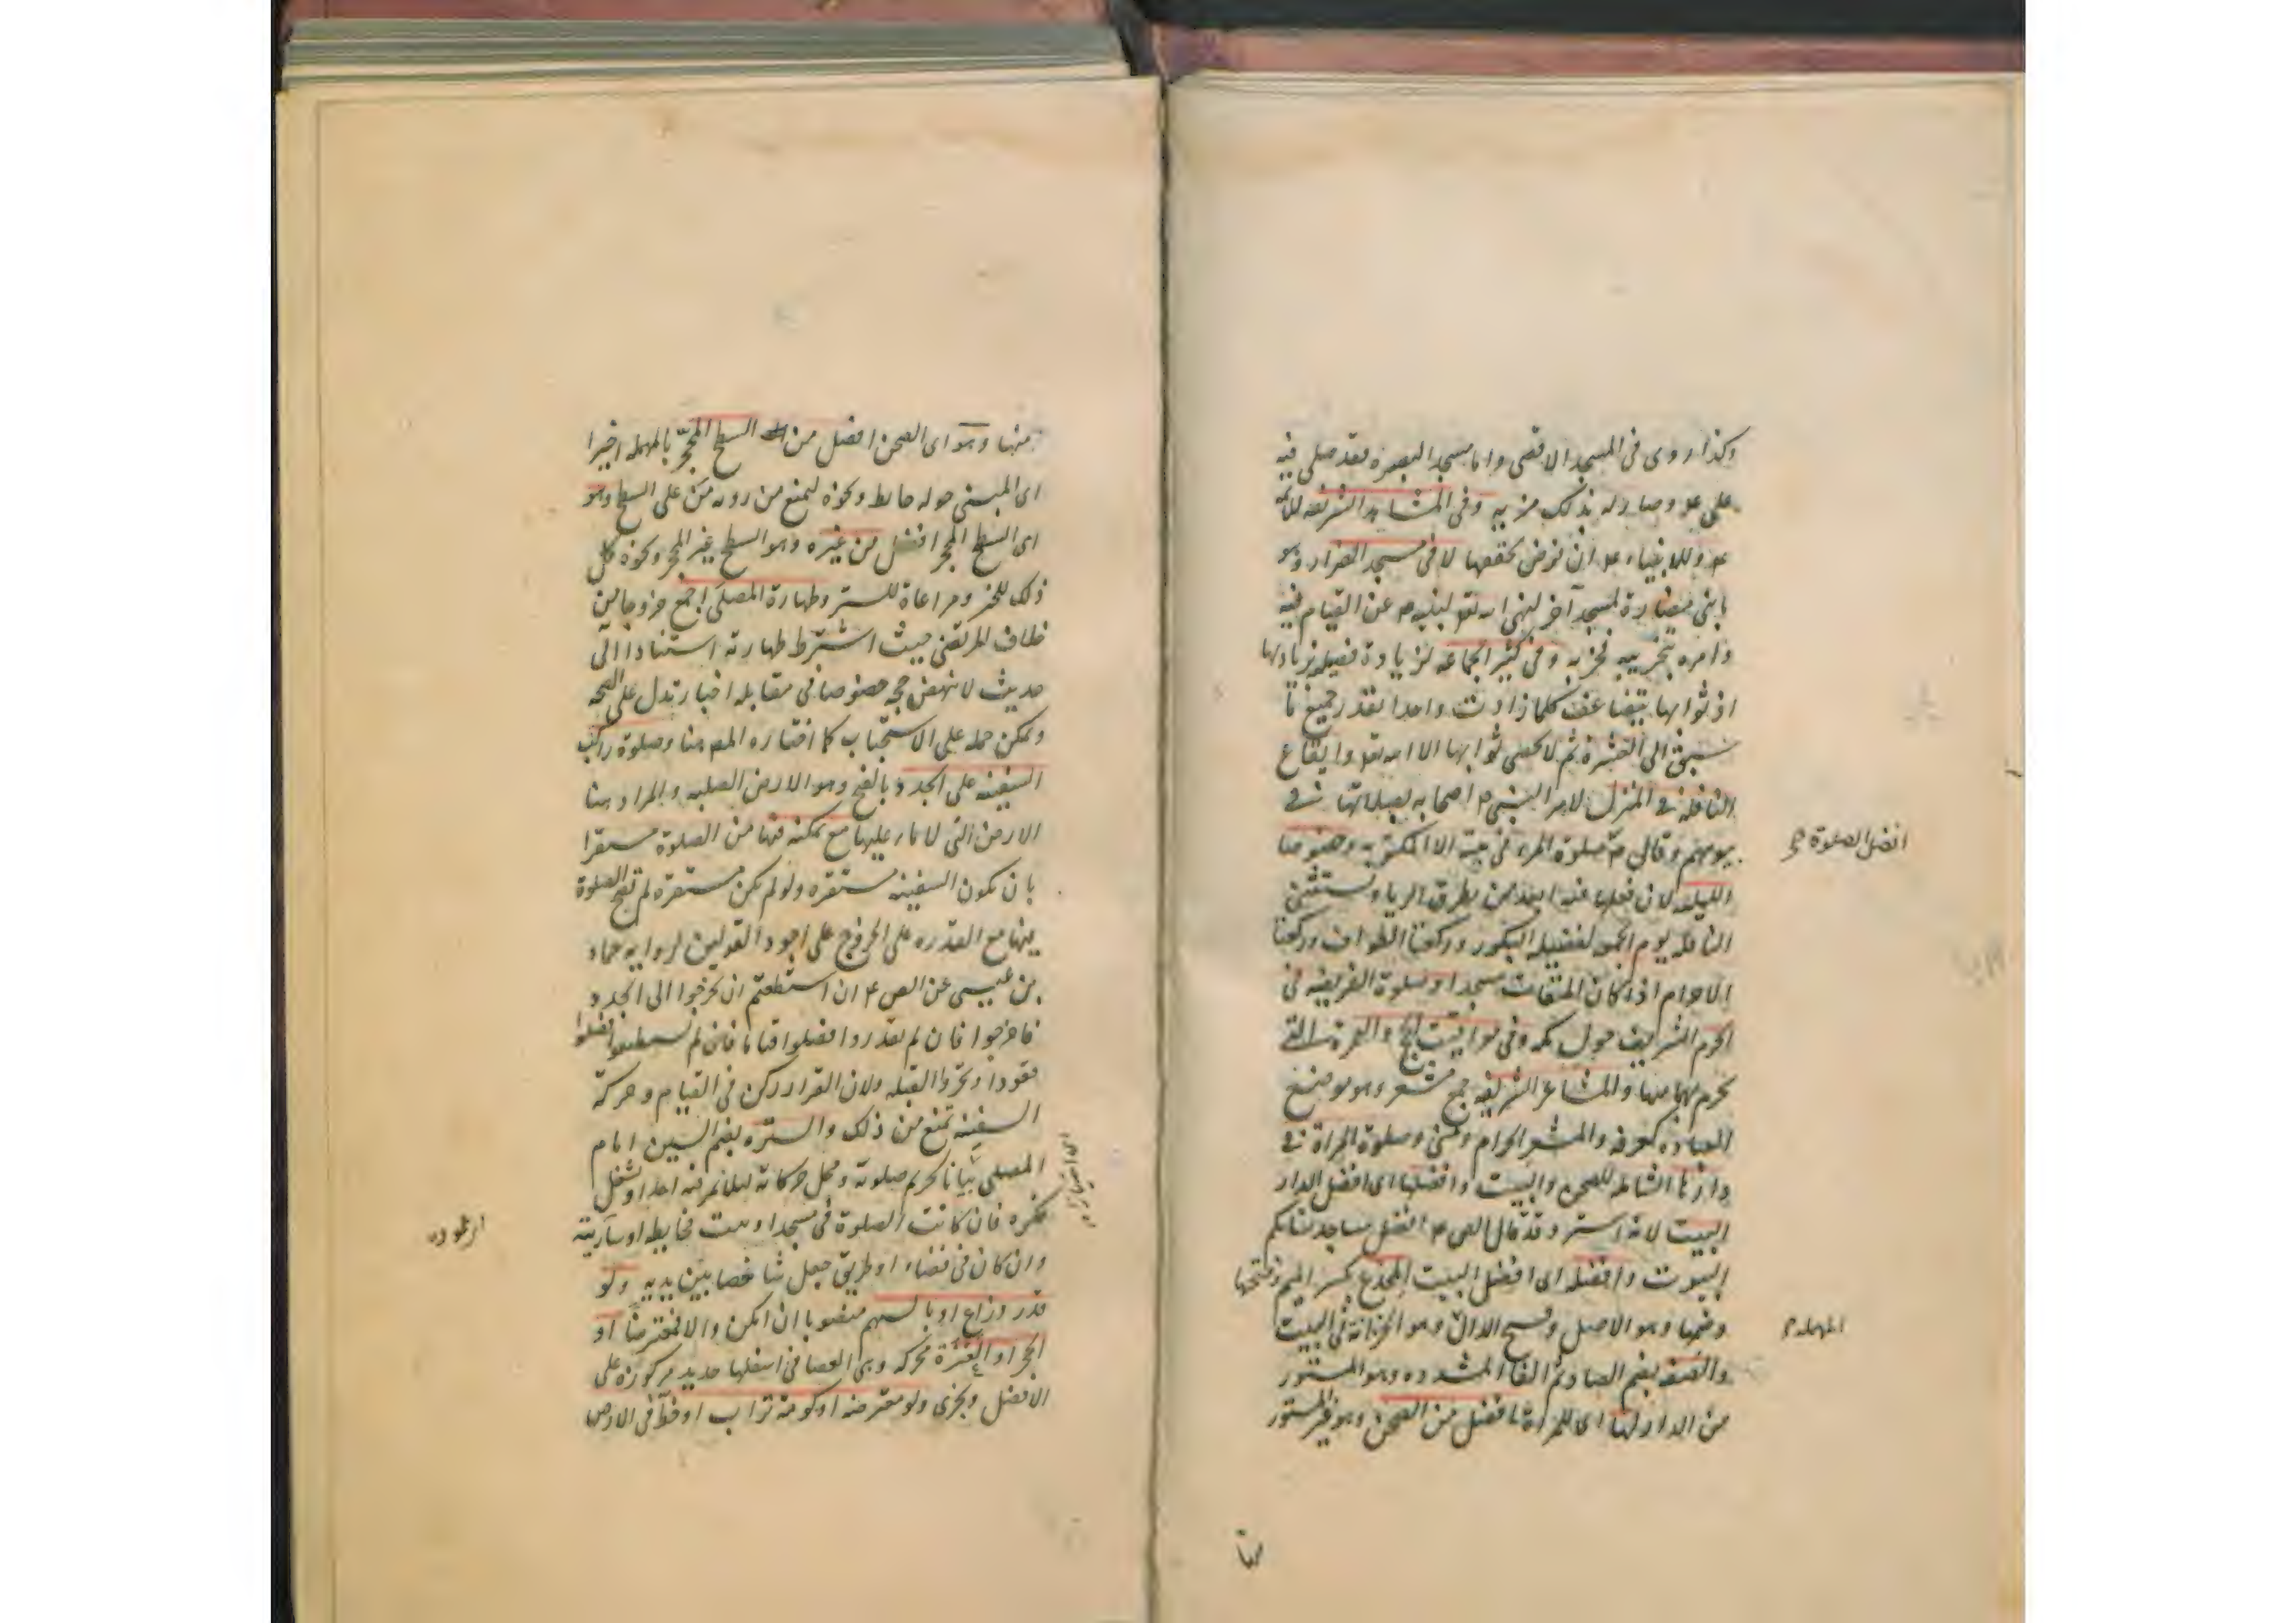 وكذا روى فى المسجد الاقصى واما مسجد البصرة فقد صلى فيه
على ع و صار له بذلك مزيه وفى المشاهد الشريفه للائمة
ع وللانبياء ع ان نوض لا فى مسجد الضرار وهو
ما بنى مضارة لمسجد آخر لنهى الله تعه لنبيه م عن القيام فيه
وامره بتخريبه فخربه وفى كثير الجماعه لزيادة فضيله بزيادتها
اذ ثوابها يتضاعف كلما زادت واحدا بقدر جميع ما
سبق الى العشرة ثم لا يحصى ثوابها الا الله تعه وايقاع
النافله فى المنزل لامر النبى م اصحابه بصلاتها فى
بيوتهم وقال م صلوة المرء فى بيته الا المكتوبه وخصوصا
افضل الصلوة
الليله لان فعلها فيه ابعد من تطرق الرياء ويستثنى
النافله يوم الجمعه لفضيله البكور وركعتا الطواف وركعتا
الاحرام اذا كان الميقات مسجدا وصلوة الفريضه فى
الحرم الشريف حول مكه وفى مواقيت الحج والعمرة التى
يحرم بهما منها والمشاعر الشريفه جمع مشعر وهو موضع
العباده كعرفه والمشعر الحرام ومنى وصلوة المراة فى
دارها الشامله للصحن والبيت وافضلها اى افضل الدار
البيت لانه استر و قد قال الص ع افضل مساجد نسائكم
البيوت وافضله اى افضل البيت المخدع بكسر الميم وفتحها
وضمها وهو الاصل وفتح الدال وهو الخزانة فى البيت
المهمله
والصفه بضم الصاد ثم الفاء المشدده وهو المستور
من الدار لها اى للمراة افضل من الصحن وهو غير المستور
منها
منها وهو اى الصحن افضل من السطح المحجر بالمهمله اخيرا
اى المبنى حوله حايط ونحوه ليمنع من رويه من على السطح وهو
اى السطح المحجر افضل من غيره وهو السطح غير المحجر ونحوه كل
ذلك للخبر ومراعاة للستر وطهارة المصلى اجمع خروجا من
خلاف المرتضى حيث اشترط طهارته استنادا الى
حديث لا ينهض حجه خصوصا فى مقابله اخبار تدل على الصحه
ويمكن حمله على الاستحباب كما اختاره المص هنا وصلوة راكب
السفينه على الجدد بالفتح وهو الارض الصلبه والمراد هنا
الارض التى لا ماء عليها مع تمكنه فيها من الصلوة مستقرا
بان يكون السفينه مستقره ولو لم يكن مستقره لم تصح الصلوة
فيها مع القدره على الخروج على اجود القولين لروايه حماد
بن عيسى عن الص ع ان استطعتم ان تخرجوا الى الجدد
فاخرجوا فان لم تقدروا فصلوا قياما فان لم تستطيعوا فصلوا
قعودا وتحروا القبله ولان القرار ركن فى القيام وحركة
السفينه تمنع من ذلك والستره بضم السين امام
المصلى بيانا لحريم صلوته ومحل حركاته لئلا يمر فيه احد او يشغل
فكره فان كانت الصلوة فى مسجد او بيت فحايطه او ساريته
وان كان فى فضاء او طريق جعل شاخصا بين يديه ولو
قدر ذراع او بالسهم منصوبا ان امكن والا فمعترضا او
الحجر او العنزة محركه وهى العصا فى اسفلها حديد مركوزه على
الافضل ويجزى ولو معترضه او كومة تراب او خط فى الارض